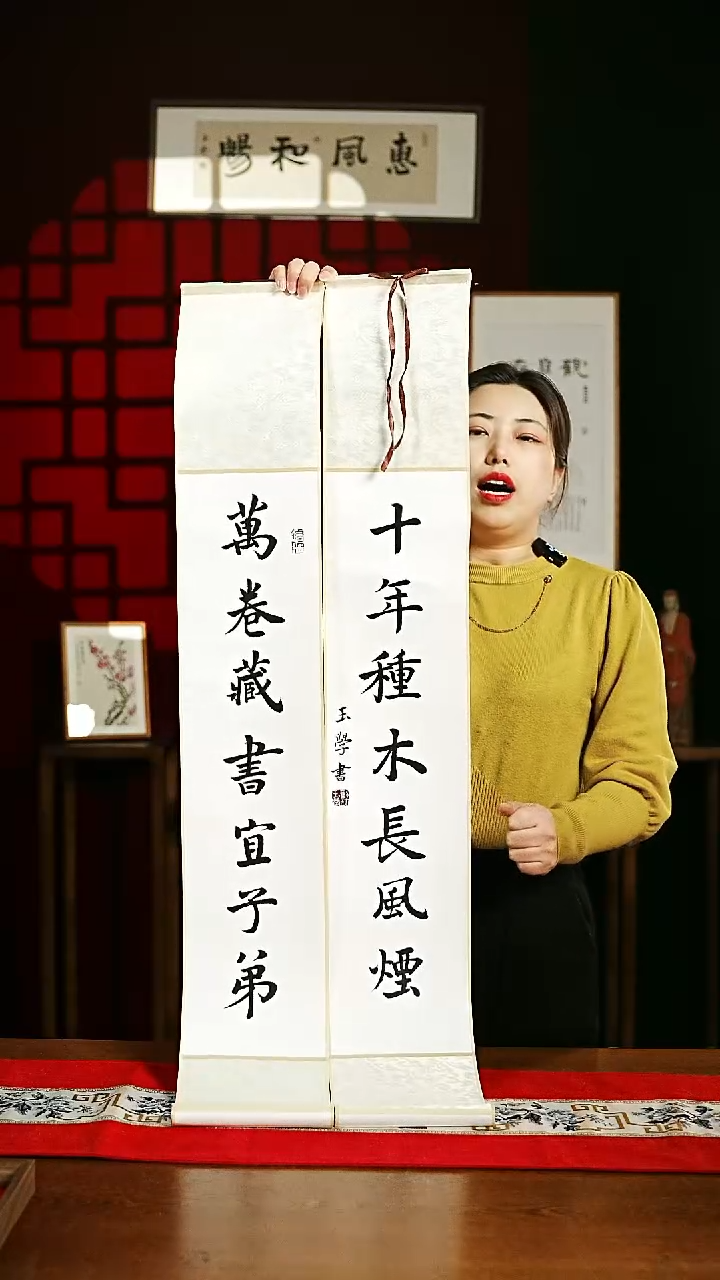 惠風和暢
十年種木長風煙
萬卷藏書宜子弟
玉學書